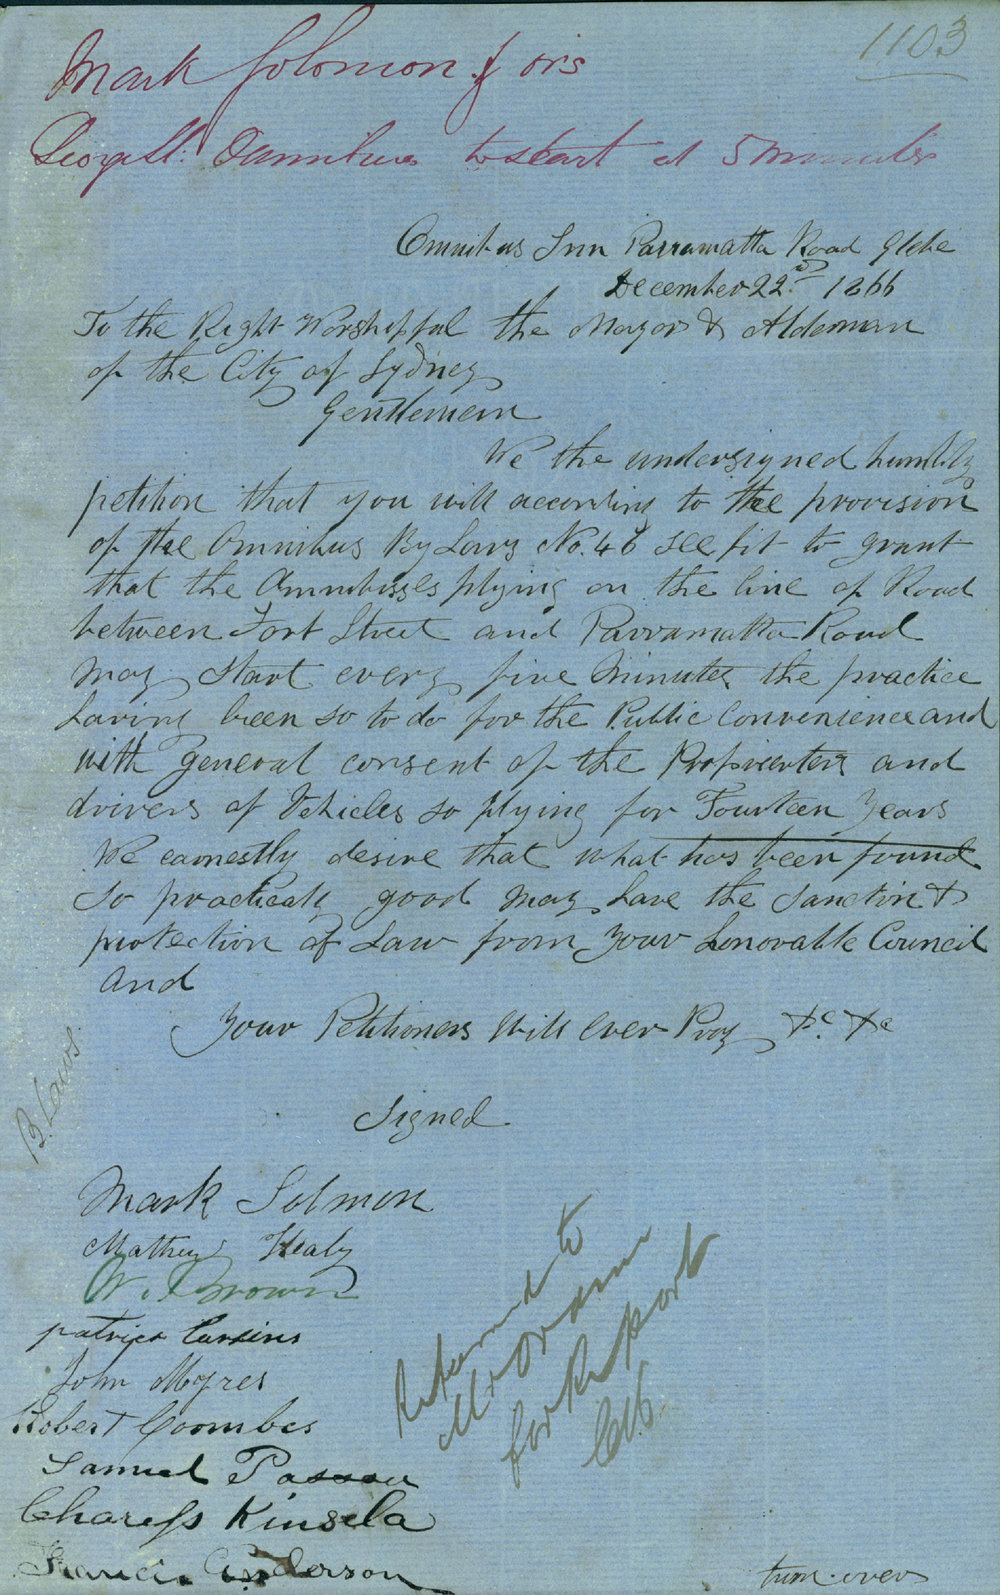 1103
Mark Solomon & ors
George St: Omnibuses to start at 5 minutes
Omnibus Inn Parramatta Road Glebe
December 22nd 1866
To the Right Worshipful the Mayor & Alderman
of the City of Sydney
Gentlemem
We the undersigned humbly
petition that you will according to the provision
of the Omnibus By Laws No. 46 see fit to grant
that the Omnibusses plying on the line of Road
between Fort Street and Parramatta Road
may start every five Minutes the practice
having been so to do for the Public Convenience and
with general consent of the Proprierters and
drivers of Vehicles so plying for Fourteen Years
We earnestly desire that what has been found
so practicaly good may have the sanction &
protection of Law from your honorable Council
and
Your Petitioners Will Ever Pray &c. &c
B. Laws.
Signed
Mark Solmon
Mathew Healy
W. Brown
patrick
John Myres
Robert Coombes
Samuel
Charels Kinsela
Francis Anderson
Returned to
Mr Oram
for Report
turn over